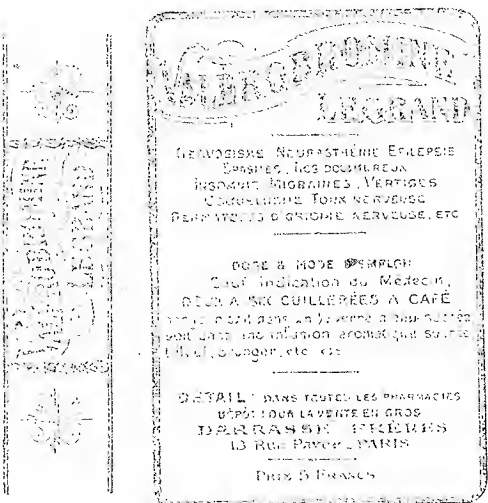 VALEROBROMINE
LEGRAND
VALEROBROMINE
LEGRAND
NERVOSISME NEURASTHÉNIE EPILEPSIE
SPASMES, RÈGLES DOULOUREUX
INSOMNIE MIGRAINES, VERTIGES
COQUELUCHE TOUX NERVEUSE
DERMATOSES D'ORIGINE NERVEUSE, ETC
DOSE & MODE D'EMPLOI
Sauf indication du Médecin,
DEUX A SIX CUILLERÉES A CAFÉ
dans un verre d'eau sucrée
soit dans une infusion aromatique
Tilleul, oranger, etc
DÉTAIL: DANS TOUTES LES PHARMACIES
DÉPÔT POUR LA VENTE EN GROS
DARRASSE FRÈRES
13 Rue Pavée_PARIS
PRIX 5 FRANCS